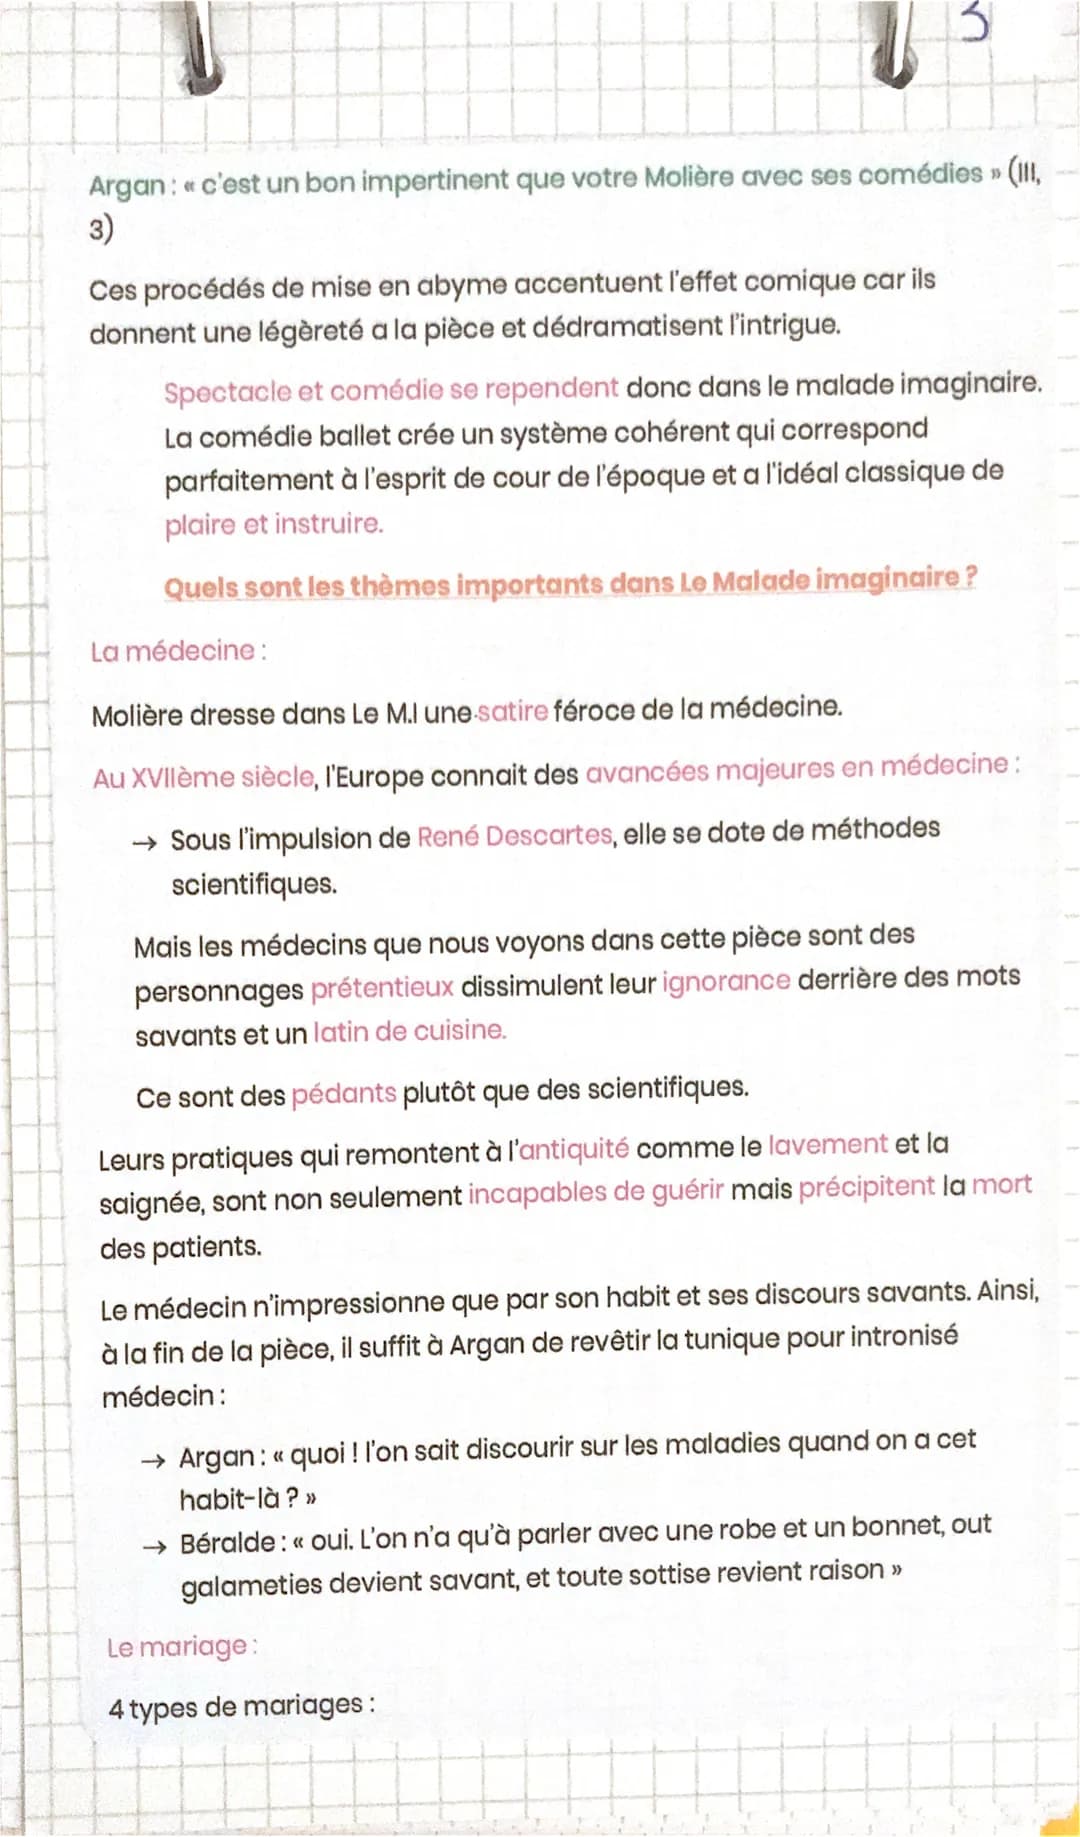 3
Argan : « c'est un bon impertinent que votre Molière avec ses comédies » (III,
3)
Ces procédés de mise en abyme accentuent l'effet comique car ils
donnent une légèreté a la pièce et dédramatisent l'intrigue.
Spectacle et comédie se rependent donc dans le malade imaginaire.
La comédie ballet crée un système cohérent qui correspond
parfaitement à l'esprit de cour de l'époque et a l'idéal classique de
plaire et instruire.
Quels sont les thèmes importants dans Le Malade imaginaire ?
La médecine :
Molière dresse dans Le M.I une satire féroce de la médecine.
Au XVIIème siècle, l'Europe connait des avancées majeures en médecine :
→ Sous l'impulsion de René Descartes, elle se dote de méthodes
scientifiques.
Mais les médecins que nous voyons dans cette pièce sont des
personnages prétentieux dissimulent leur ignorance derrière des mots
savants et un latin de cuisine.
Ce sont des pédants plutôt que des scientifiques.
Leurs pratiques qui remontent à l'antiquité comme le lavement et la
saignée, sont non seulement incapables de guérir mais précipitent la mort
des patients.
Le médecin n'impressionne que par son habit et ses discours savants. Ainsi,
à la fin de la pièce, il suffit à Argan de revêtir la tunique pour intronisé
médecin :
→ Argan : « quoi ! l'on sait discourir sur les maladies quand on a cet
habit-là ? »
→ Béralde : « oui. L'on n'a qu'à parler avec une robe et un bonnet, out
galameties devient savant, et toute sottise revient raison »
Le mariage :
4 types de mariages :